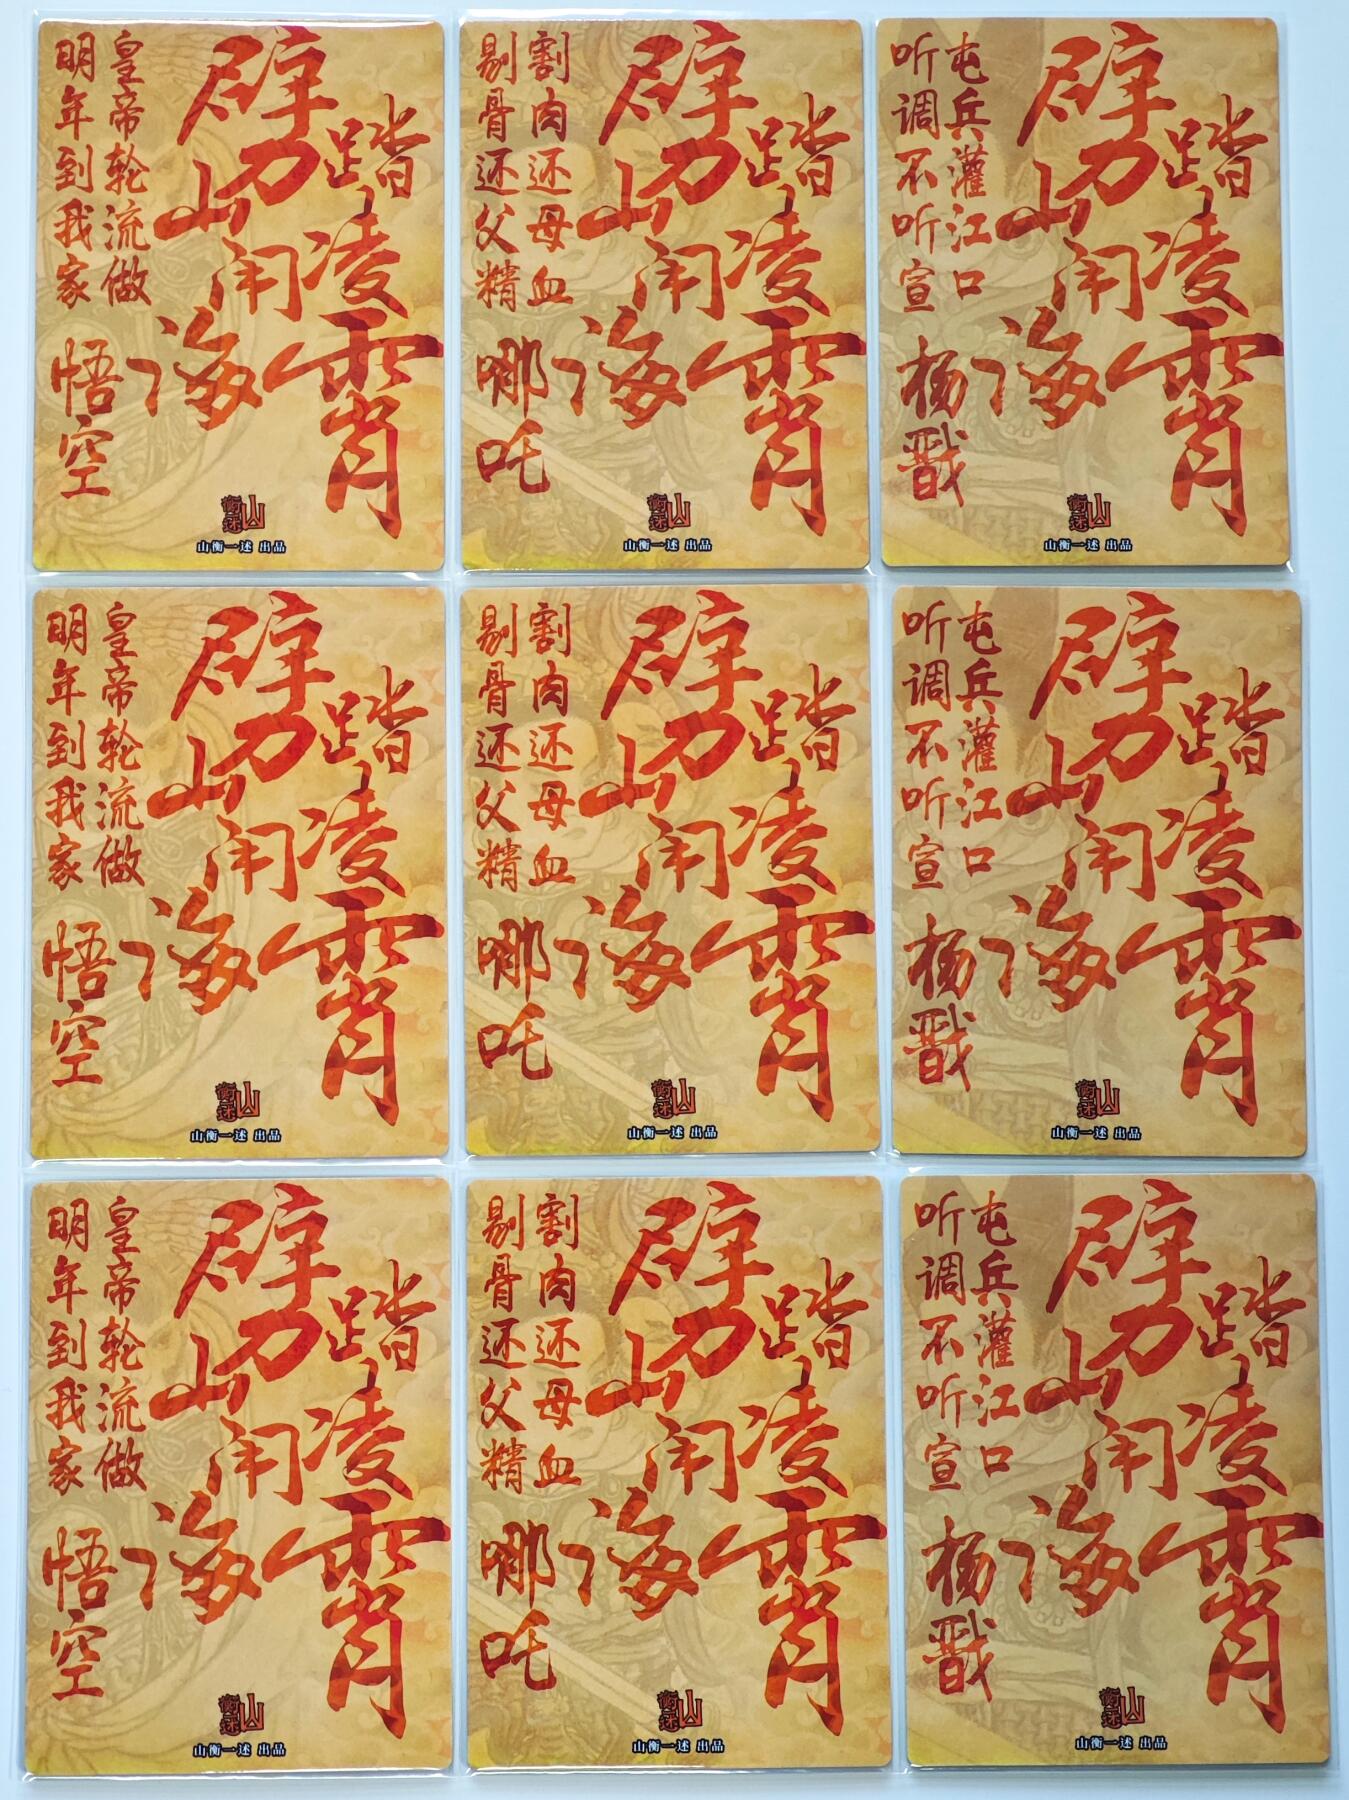 劈山闹海
踏凌霄
皇帝轮流做
明年到我家
悟空
山衡一述
山衡一述 出品
劈山闹海
踏凌霄
割肉还母血
剔骨还父精
哪吒
山衡一述
山衡一述 出品
劈山闹海
踏凌霄
屯兵灌江口
听调不听宣
杨戬
山衡一述
山衡一述 出品
劈山闹海
踏凌霄
皇帝轮流做
明年到我家
悟空
山衡一述
山衡一述 出品
劈山闹海
踏凌霄
割肉还母血
剔骨还父精
哪吒
山衡一述
山衡一述 出品
劈山闹海
踏凌霄
屯兵灌江口
听调不听宣
杨戬
山衡一述
山衡一述 出品
劈山闹海
踏凌霄
皇帝轮流做
明年到我家
悟空
山衡一述
山衡一述 出品
劈山闹海
踏凌霄
割肉还母血
剔骨还父精
哪吒
山衡一述
山衡一述 出品
劈山闹海
踏凌霄
屯兵灌江口
听调不听宣
杨戬
山衡一述
山衡一述 出品